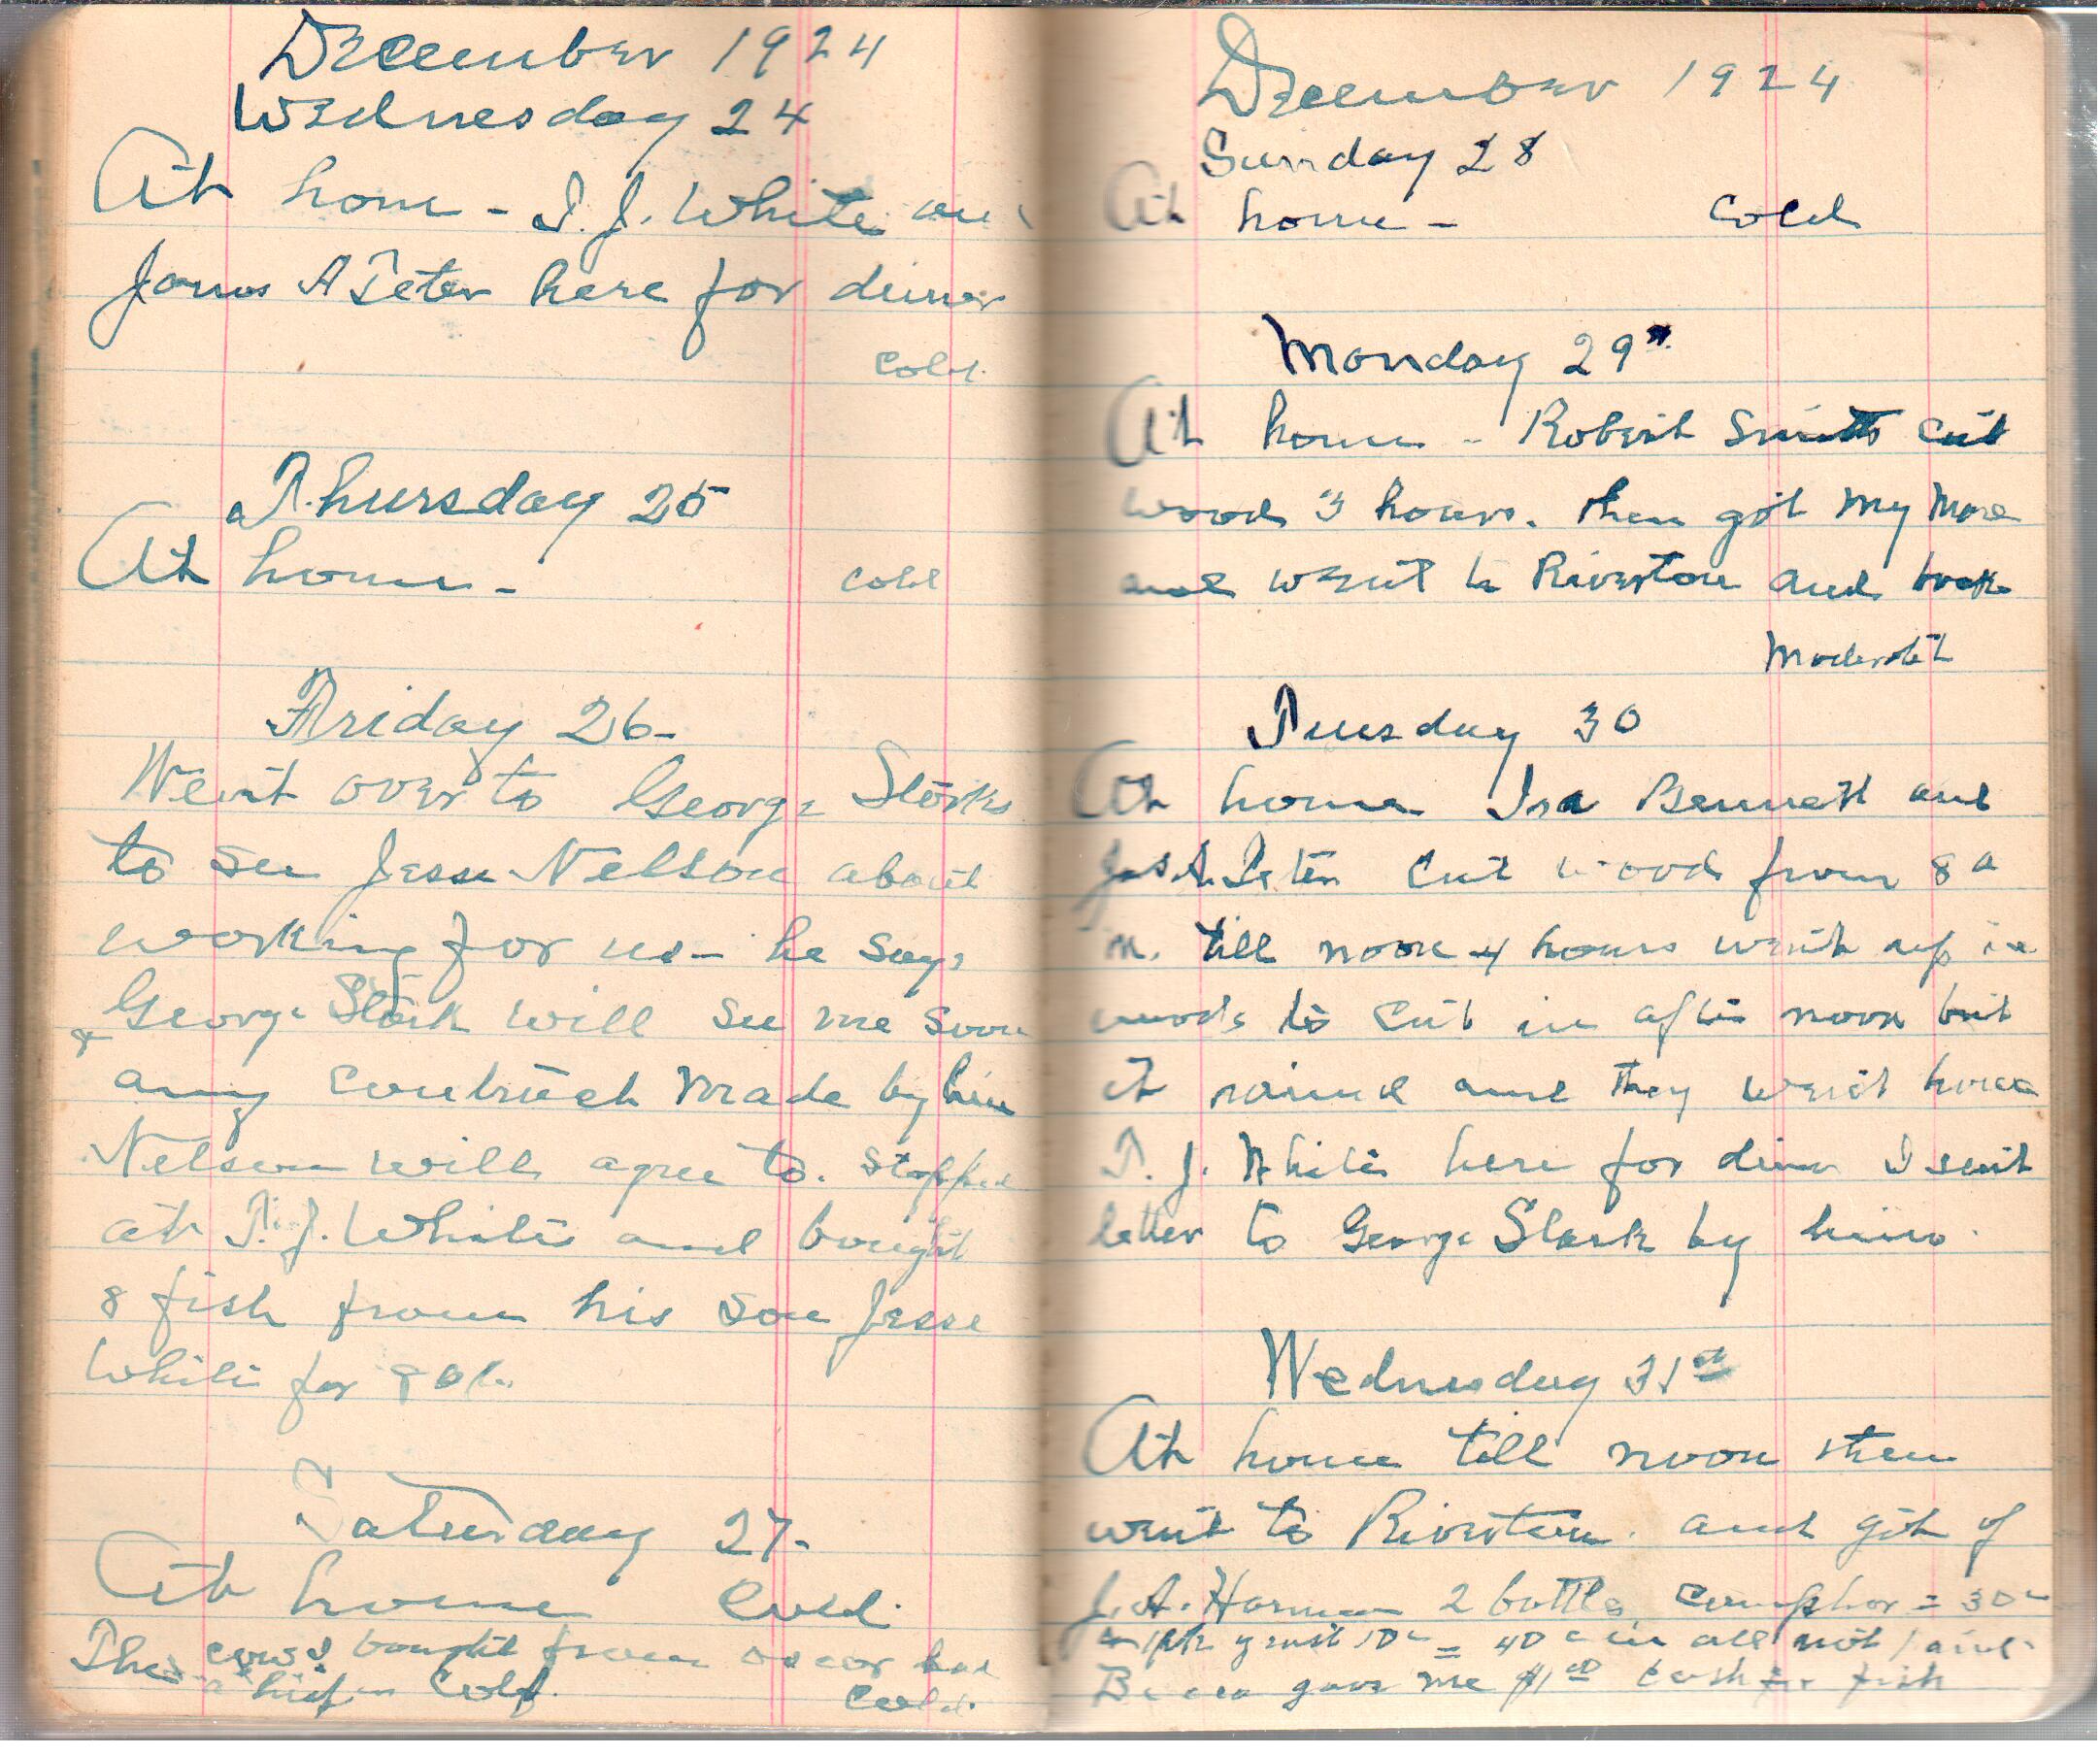 December 1924
Wednesday 24
At home - T. J. White and
James A Teter here for dinner
cold.
Thursday 25
At home -
cold
Friday 26 -
Went over to George Slarks
to see Jesse Nelson about
working for us - he says
George Slark will see me soon
& any contract made by him
Nelson will agree to. Stopped
at T. J. White and bought
8 fish from his son Jesse
White for 80c.
Saturday 27 -
At home Cold.
The cow I bought from oscar had
a heifer Calf.
Cold.
December 1924
Sunday 28
At home - cold
Monday 29th
At home - Robert Smith cut
wood 3 hours. then got my mare
and went to Riverton and back
Moderate
Tuesday 30
At home Ira Bennett and
Jas A. Teter cut wood from 8 a
m. till noon 4 hours went up in
woods to cut in after noon but
it rained and they went home
T. J. White here for dinner I sent
letter to George Slark by him.
Wednesday 31st
At home till noon then
went to Riverton. and got of
J. A. Harman 2 bottles camphor = 30c
yeast 10c = 40c in all not paid.
gave me $1.00 cash for fish